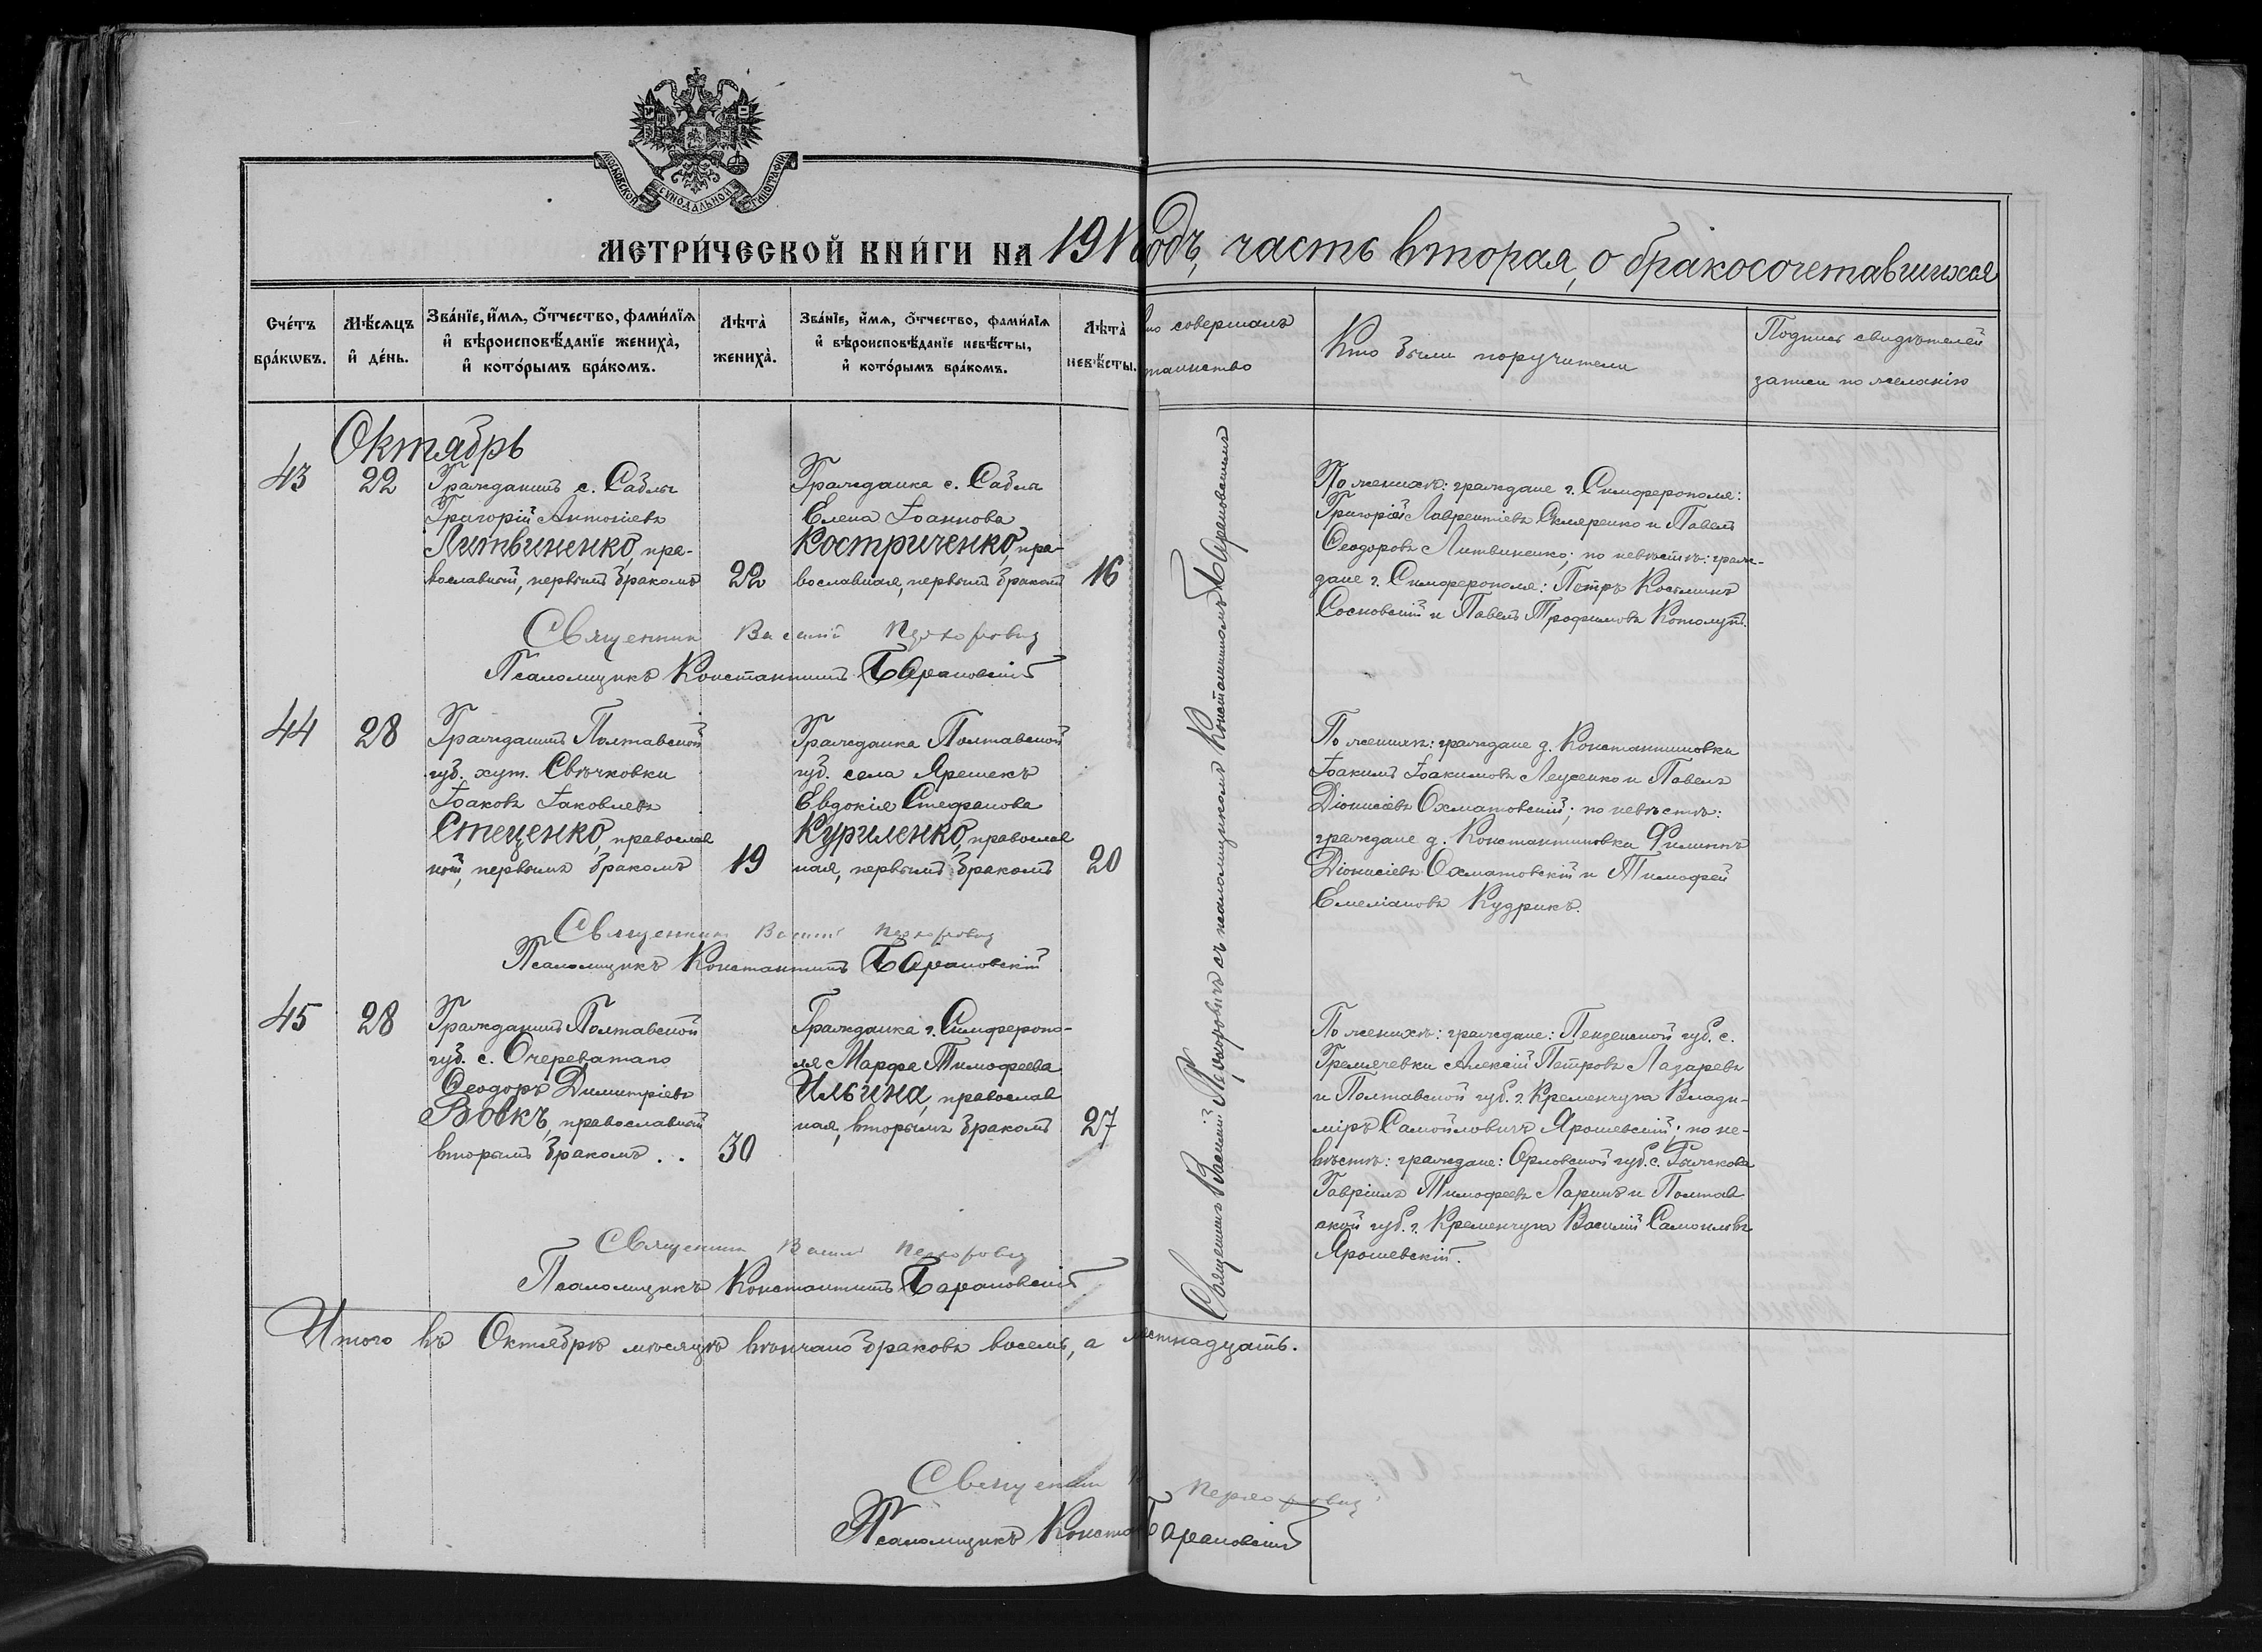 МОСКОВСКОЙ СУНОДАЛЬНОЙ ТИПОГРАФІИ
МЕТРИ́ЧЕСКОЙ КНИ́ГИ НА 191 годъ, часть вторая, о бракосочетавшихся
Сче́тъ бра́кѡвъ.
Мѣ́сяцъ и҆ де́нь.
Зва́нїе, и҆́мѧ, ѻ҆́тчество, фами́лїѧ
и҆ вѣроисповѣ́данїе жениха̀,
и҆ кото́рымъ бра́комъ.
Лѣта̀
жениха̀.
Зва́нїе, и҆́мѧ, ѻ҆́тчество, фами́лїѧ
и҆ вѣроисповѣ́данїе невѣ́сты,
и҆ кото́рымъ бра́комъ.
Лѣта̀
невѣ́сты.
совершалъ
таинство
Кто были поручители
Подпись свидѣтелей
записи по желанію
Октябрь
43
22
Гражданинъ с. Саблы
Григорій Антоніевъ
Литвиненко, пра-
вославный, первымъ бракомъ
22
Гражданка с. Сабла
Елена Іоаннова
Костриченко, пра-
вославная, первымъ бракомъ
16
По женихѣ: граждане г. Симферополя:
Григорій Лаврентіевъ Скляренко и Павелъ
Ѳеодоровъ Литвиненко; по невѣстѣ: граж-
дане г. Симферополя: Петръ Косьминъ
Сосновскій и Павелъ Трофимовъ
Священник Василий Прохорович
Псаломщикъ Константинъ Барановскій
44
28
Гражданинъ Полтавской
губ. хут. Свѣчковки
Іаковъ Іаковлевъ
Стеценко, православ
ный, первымъ бракомъ
19
Гражданка Полтавской
губ. села Ярешекъ
Евдокія Стефанова
Куриленко, православ
ная, первымъ бракомъ
20
По женихѣ: граждане д. Константиновки
Іоакимъ Іоакимовъ и Павелъ
Діонисіевъ Охматовскій; по невѣстѣ:
граждане д. Константиновки Филиппъ
Діонисіевъ Охматовскій и Тимофей
Емеліановъ Кудрикъ.
Священник Василий Прохорович
Псаломщикъ Константинъ Барановскій
45
28
Гражданинъ Полтавской
губ. с. Очереватаго
Ѳеодоръ Димитріевъ
Вовкъ, православный
вторымъ бракомъ . .
30
Гражданка г. Симферопо-
ля Марфа Тимофеева
Ильина, православ
ная, вторымъ бракомъ
27
По женихѣ: граждане: Пензенской губ. с.
Гремячевки Алексій Петровъ Лазаревъ
и Полтавской губ. г. Кременчуга Влади-
міръ Самойловичъ Ярошевскій; по не-
вѣстѣ: граждане: Орловской губ. с.
Гавріилъ Тимофеевъ Ларинъ и Полтав
ской губ. г. Кременчуга Василій Самоиловъ
Ярошевскій.
Священник Василий Прохорович
Псаломщикъ Константинъ Барановскій
Священникъ Василій Прохоровичъ съ псаломщикомъ Константиномъ Барановскимъ
Итого въ Октябрѣ мѣсяцѣ вѣнчано браковъ восемь, а
Священник Прохорович
Псаломщикъ Конста Барановскій